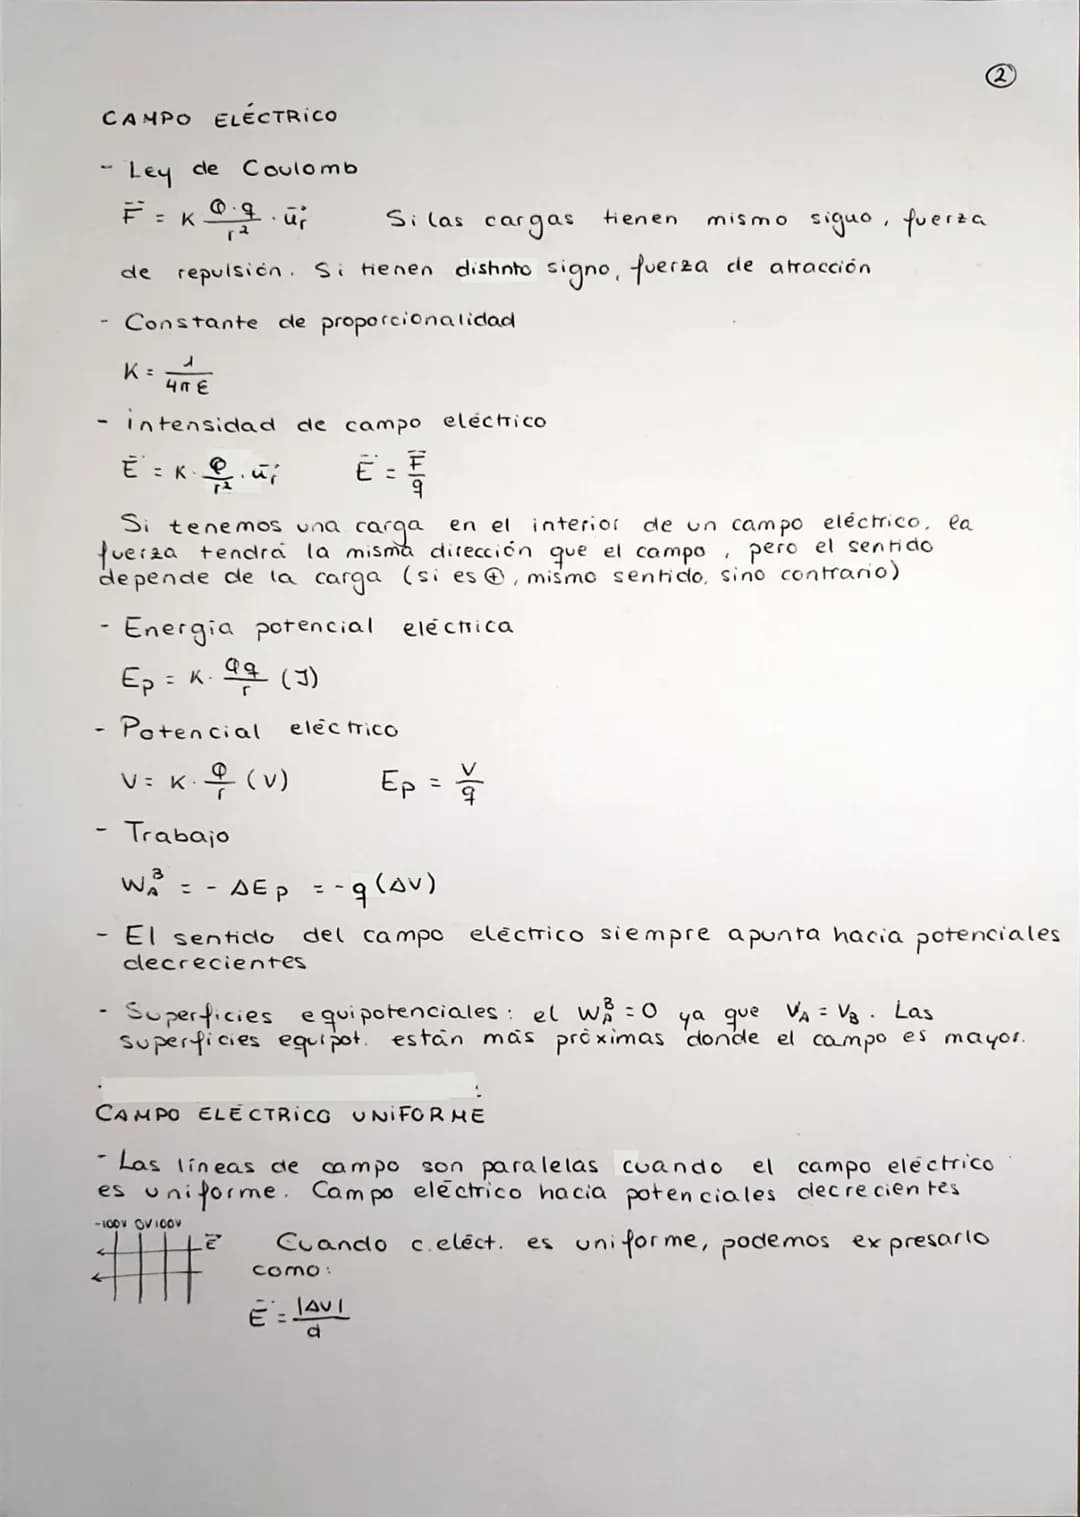 ②
CAMPO ELÉCTRICO
- Ley de Coulomb
F⃗ = K Q·q/r² · u⃗r Si las cargas tienen mismo siguo, fuerza
de repulsión. Si tienen distinto signo, fuerza de atracción
- Constante de proporcionalidad
K = 1/4πε
- intensidad de campo eléctrico
E⃗ = K · Q/r² · u⃗r E⃗ = F⃗/q
Si tenemos una carga en el interior de un campo eléctrico, la
fuerza tendrá la misma dirección que el campo, pero el sentido
depende de la carga (si es ⊕, mismo sentido, sino contrario)
- Energía potencial eléctrica
Ep = K · Qq/r (J)
- Potencial eléctrico
V = K · Q/r (V) Ep = V/q
- Trabajo
W_A^B = - ΔEp = -q(ΔV)
- El sentido del campo eléctrico siempre apunta hacia potenciales
decrecientes
- Superficies equipotenciales: el W_A^B = 0 ya que V_A = V_B. Las
superficies equipot. están más próximas donde el campo es mayor.
CAMPO ELÉCTRICO UNIFORME
- Las líneas de campo son paralelas cuando el campo eléctrico
es uniforme. Campo eléctrico hacia potenciales decrecientes
-100V 0V 100V
E⃗ Cuando c.eléct. es uniforme, podemos expresarlo
como:
E⃗ = |ΔV|/d